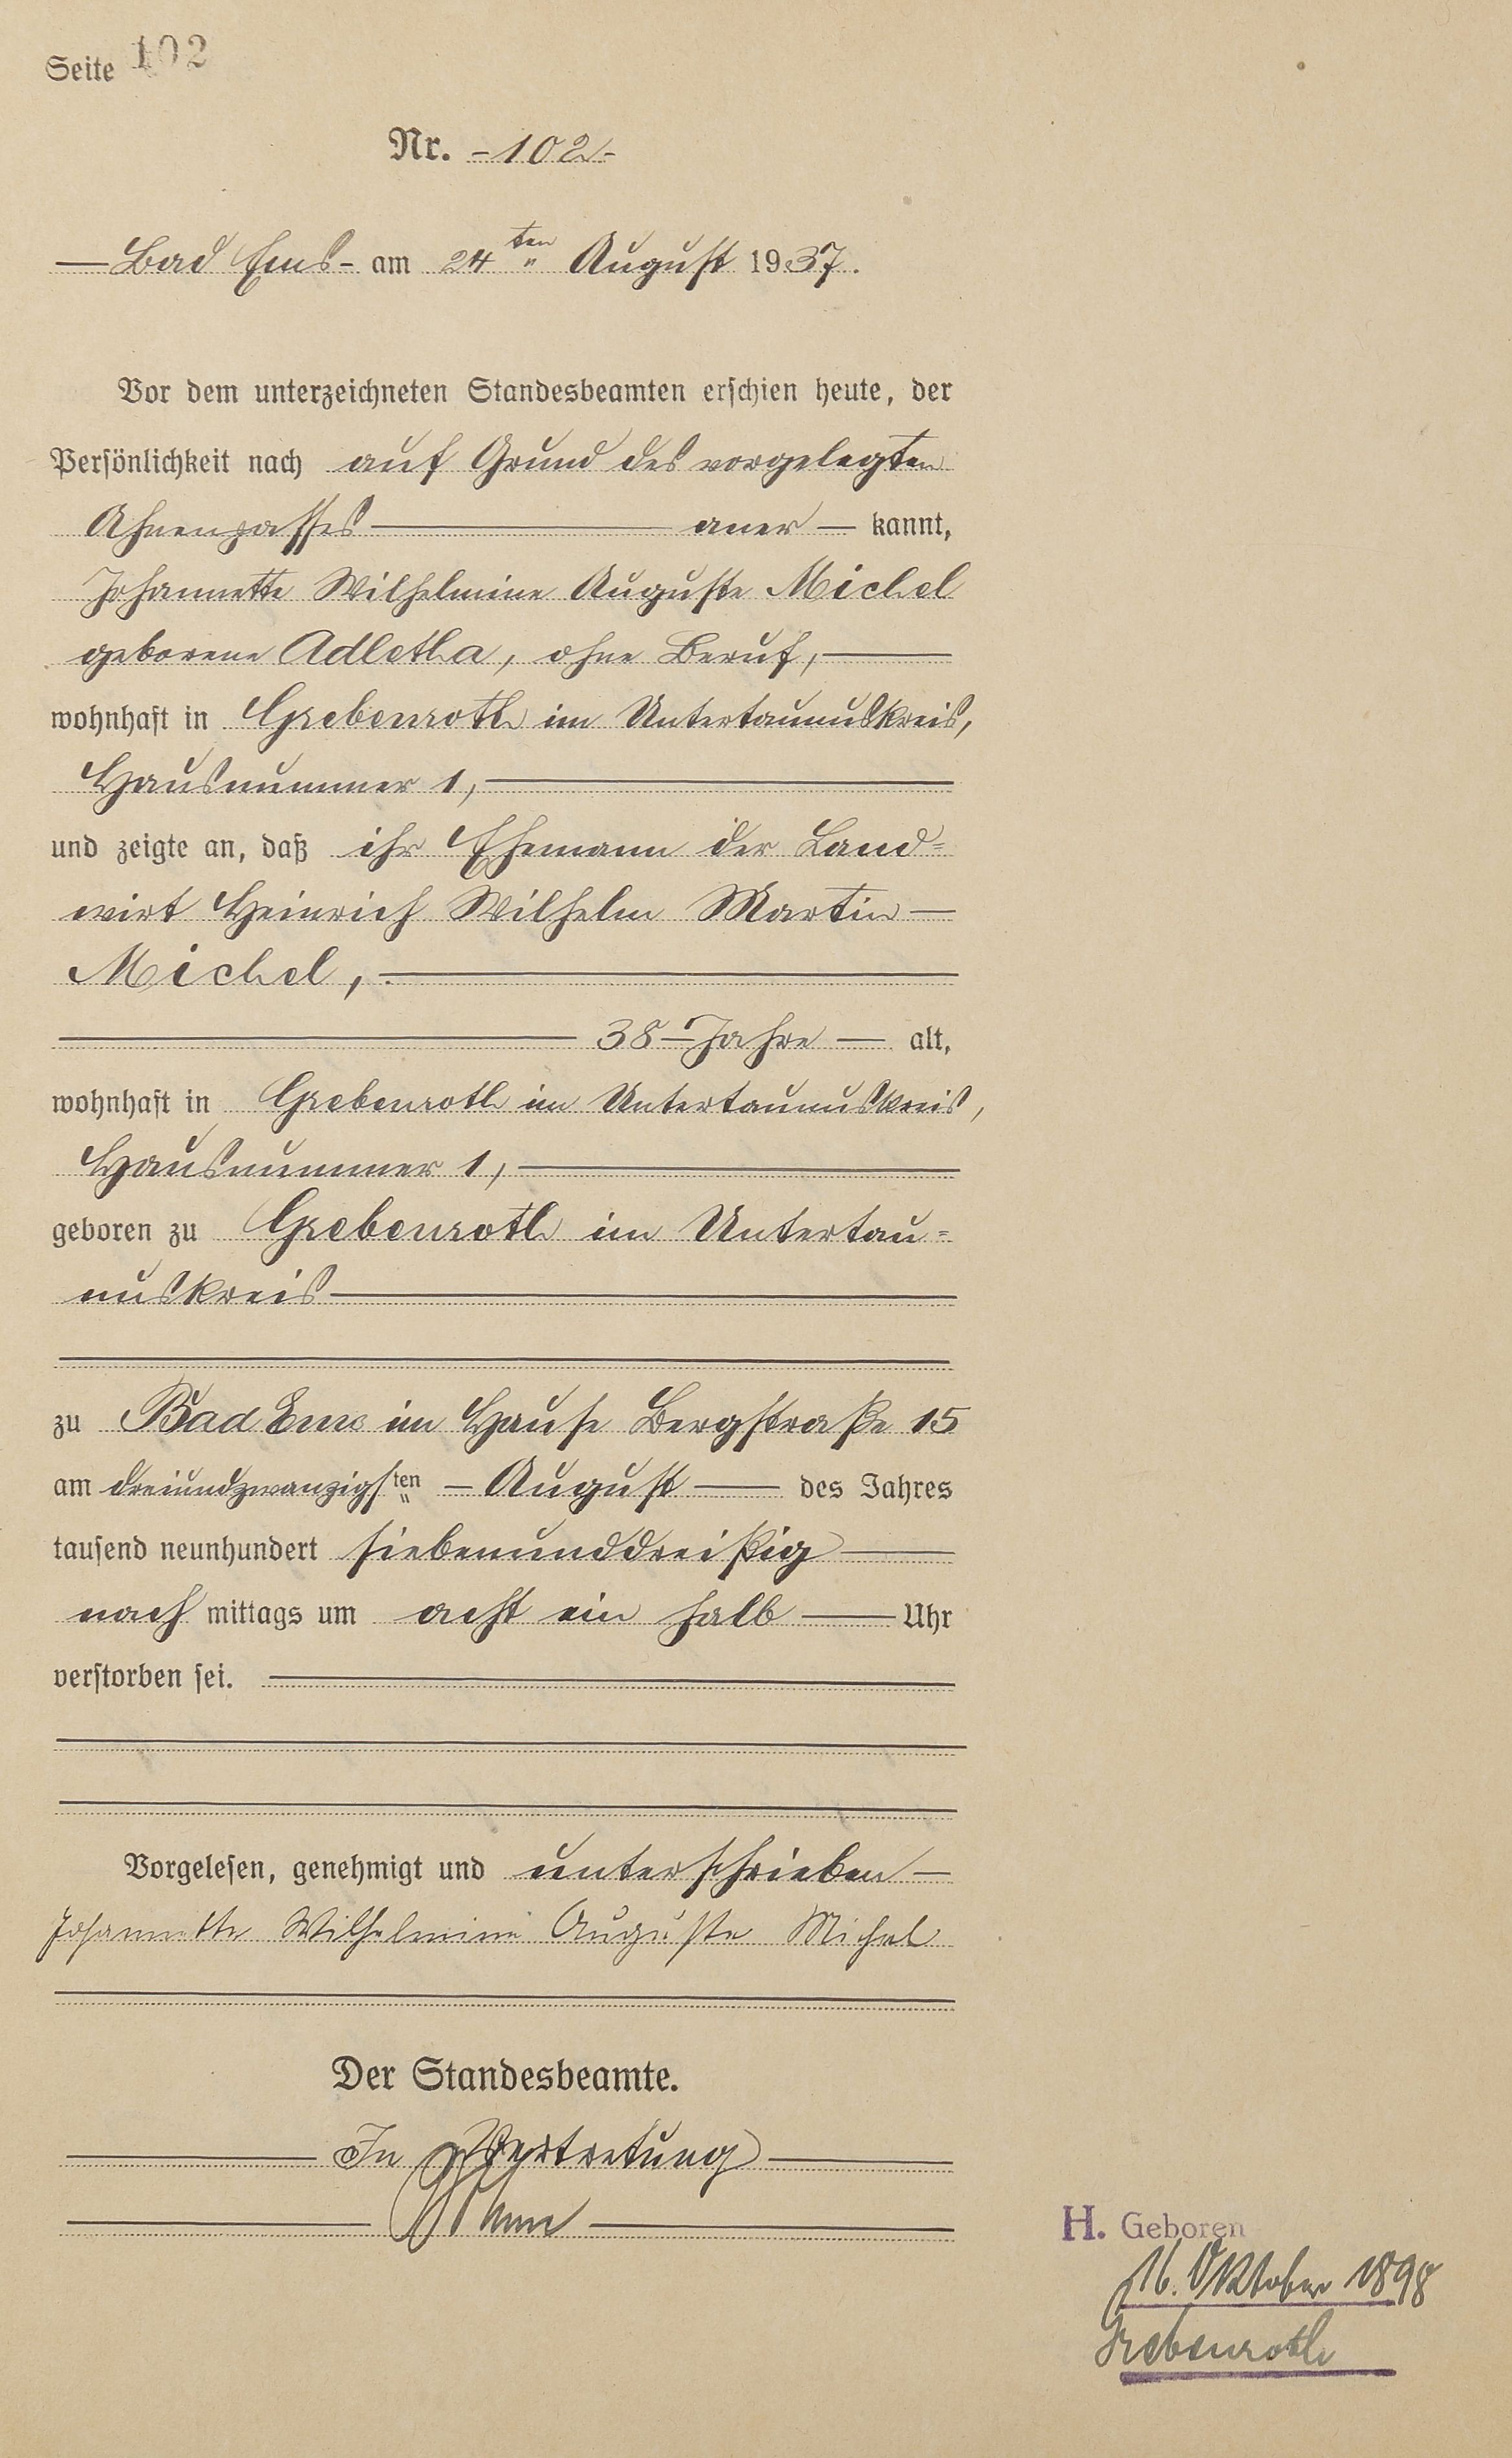 Seite 102
Nr. -102-
— Bad Ems - am 24ten August 1937.
Vor dem unterzeichneten Standesbeamten erschien heute, der
Persönlichkeit nach auf Grund des vorgelegten
Ahnenpasses — aner — kannt,
Johannette Wilhelmine Auguste Michel
geborene Adletha, ohne Beruf, —
wohnhaft in Grebenroth im Untertaunuskreis,
Hausnummer 1, —
und zeigte an, daß ihr Ehemann der Land=
wirt Heinrich Wilhelm Martin —
Michel, —
— 38 - Jahre — alt,
wohnhaft in Grebenroth im Untertaunuskreis,
Hausnummer 1, —
geboren zu Grebenroth im Untertau=
nuskreis —
zu Bad Ems im Hause Bergstraße 15
am dreiundzwanzigsten — August — des Jahres
tausend neunhundert siebenunddreißig —
nach mittags um acht ein halb — Uhr
verstorben sei. —
Vorgelesen, genehmigt und unterschrieben —
Johannette Wilhelmine Auguste Michel
Der Standesbeamte.
— In Vertretung —
H. Geboren
16. Oktober 1898
Grebenroth